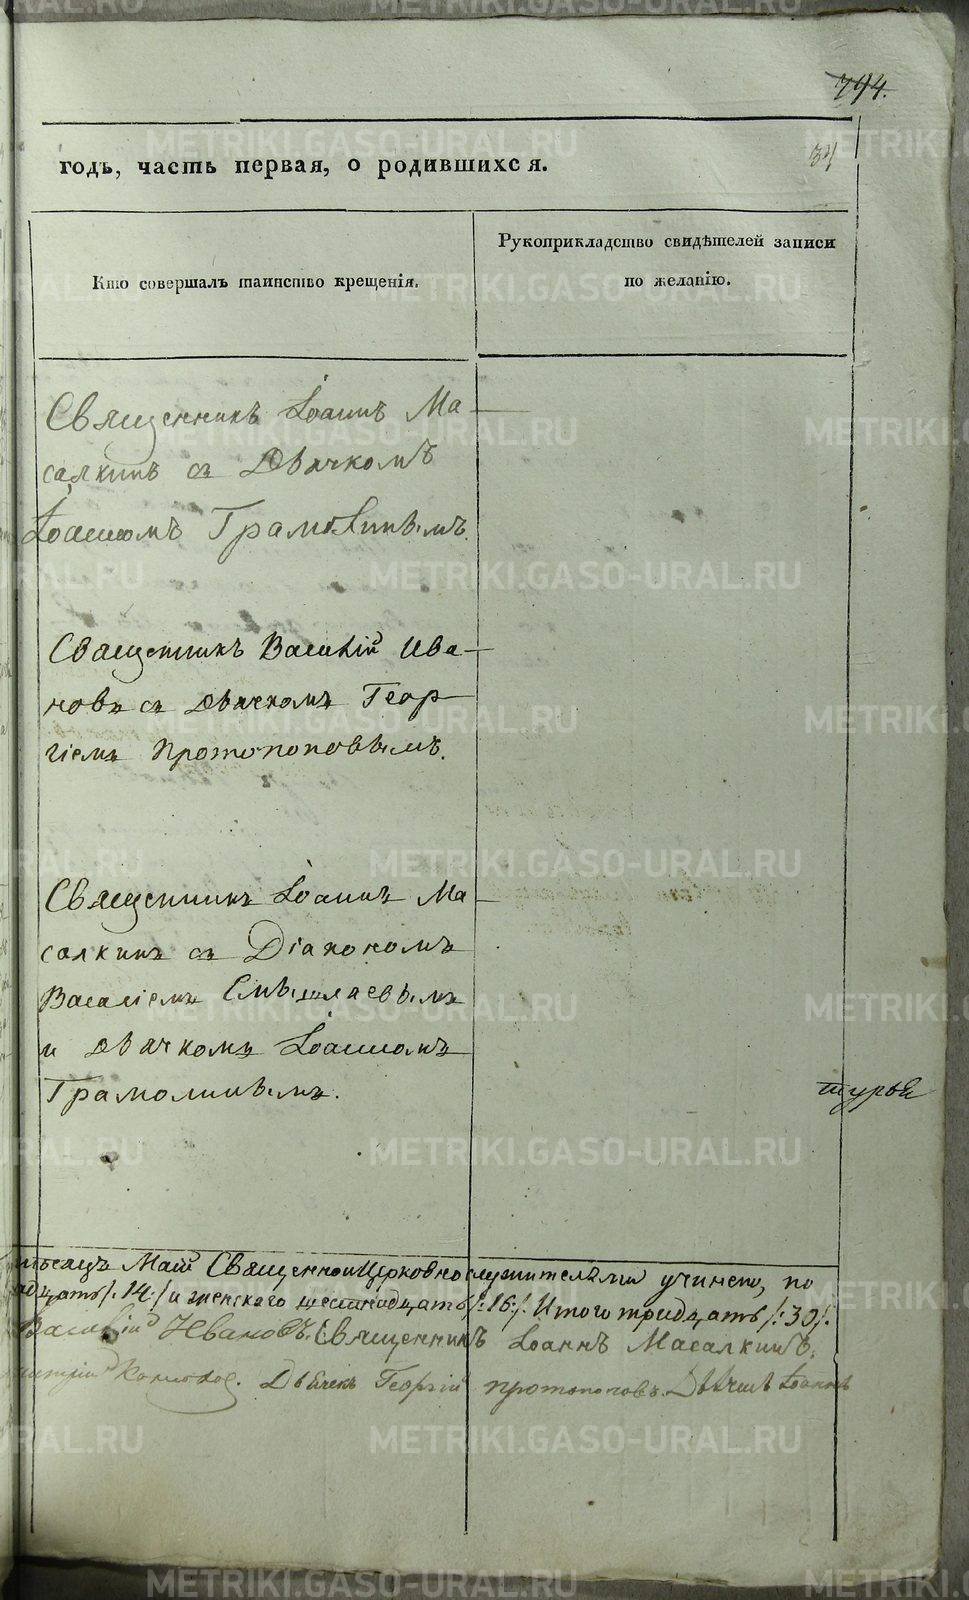 794.
годъ, часть первая, о родившихся.
34
Кто совершалъ таинство крещенія.
Рукоприкладство свидѣтелей записи
по желанію.
Священникъ Іоаннъ Ма
салкинъ съ Дьячкомъ
Іоанномъ Грамолинымъ.
Священникъ Василій Ива
новъ съ дьячкомъ Геор
гіемъ Протопоповымъ.
Священникъ Іоаннъ Ма
салкинъ съ Діакономъ
Василіемъ Смышляевымъ
и дьячкомъ Іоанномъ
Грамолинымъ.
турья
мѣсяцъ Маій Священно и Церковнослужителями учинено, по
адцать /:14:/ и женского шестнадцать /:16:/. Итого тридцать /:30/.
Василій Ивановъ. Священникъ Іоаннъ Масалкинъ.
Дьячекъ Георгій протопоповъ. Дьячекъ Іоаннъ